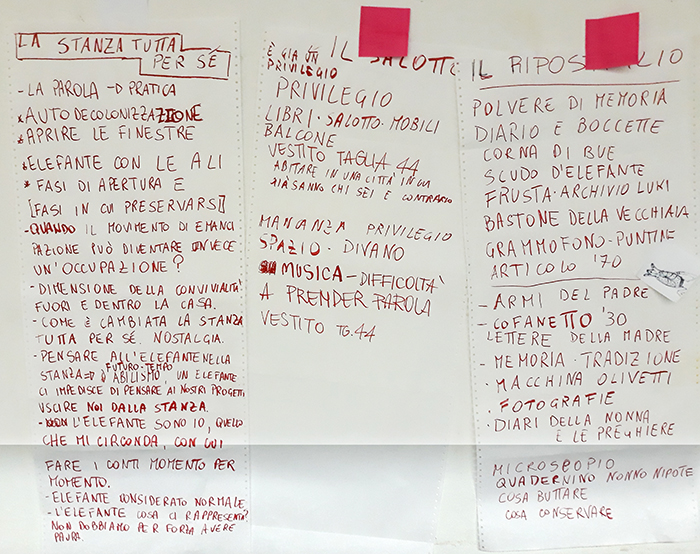 LA STANZA TUTTA
PER SÉ
- LA PAROLA → PRATICA
* AUTODECOLONIZZAZIONE
* APRIRE LE FINESTRE
* ELEFANTE CON LE ALI
* FASI DI APERTURA E
[FASI IN CUI PRESERVARSI]
- QUANDO IL MOVIMENTO DI EMANCI
PAZIONE PUÒ DIVENTARE INVECE
UN'OCCUPAZIONE?
- DIMENSIONE DELLA CONVIVIALITÀ
FUORI E DENTRO LA CASA.
- COME È CAMBIATA LA STANZA
TUTTA PER SÉ. NOSTALGIA.
- PENSARE ALL'ELEFANTE NELLA
FUTURO-TEMPO
STANZA => D'ABILISMO, UN ELEFANTE
CI IMPEDISCE DI PENSARE AI NOSTRI PROGETTI
USCIRE NOI DALLA STANZA.
- L'ELEFANTE SONO IO, QUELLO
CHE MI CIRCONDA, CON CUI
FARE I CONTI MOMENTO PER
MOMENTO.
- ELEFANTE CONSIDERATO NORMALE
- L'ELEFANTE COSA CI RAPPRESENTA?
NON DOBBIAMO PER FORZA AVERE
PAURA.
IL SALOTTO
È GIÀ UN
PRIVILEGIO
PRIVILEGIO
LIBRI · SALOTTO · MOBILI
BALCONE
VESTITO TAGLIA 44
ABITARE IN UNA CITTÀ IN CUI
GIÀ SANNO CHI SEI E CONTRARIO
MANCANZA PRIVILEGIO
SPAZIO · DIVANO
MUSICA - DIFFICOLTÀ
A PRENDER PAROLA
VESTITO TG. 44
IL RIPOSTIGLIO
POLVERE DI MEMORIA
DIARIO E BOCCETTE
CORNA DI BUE
SCUDO D'ELEFANTE
FRUSTA · ARCHIVIO LUKI
BASTONE DELLA VECCHIAIA
GRAMMOFONO - PUNTINE
ARTICOLO '70
- ARMI DEL PADRE
- COFANETTO '30
LETTERE DELLA MADRE
- MEMORIA - TRADIZIONE
· MACCHINA OLIVETTI
· FOTOGRAFIE
· DIARI DELLA NONNA
E LE PREGHIERE
MICROSCOPIO
QUADERNINO NONNO NIPOTE
COSA BUTTARE
COSA CONSERVARE